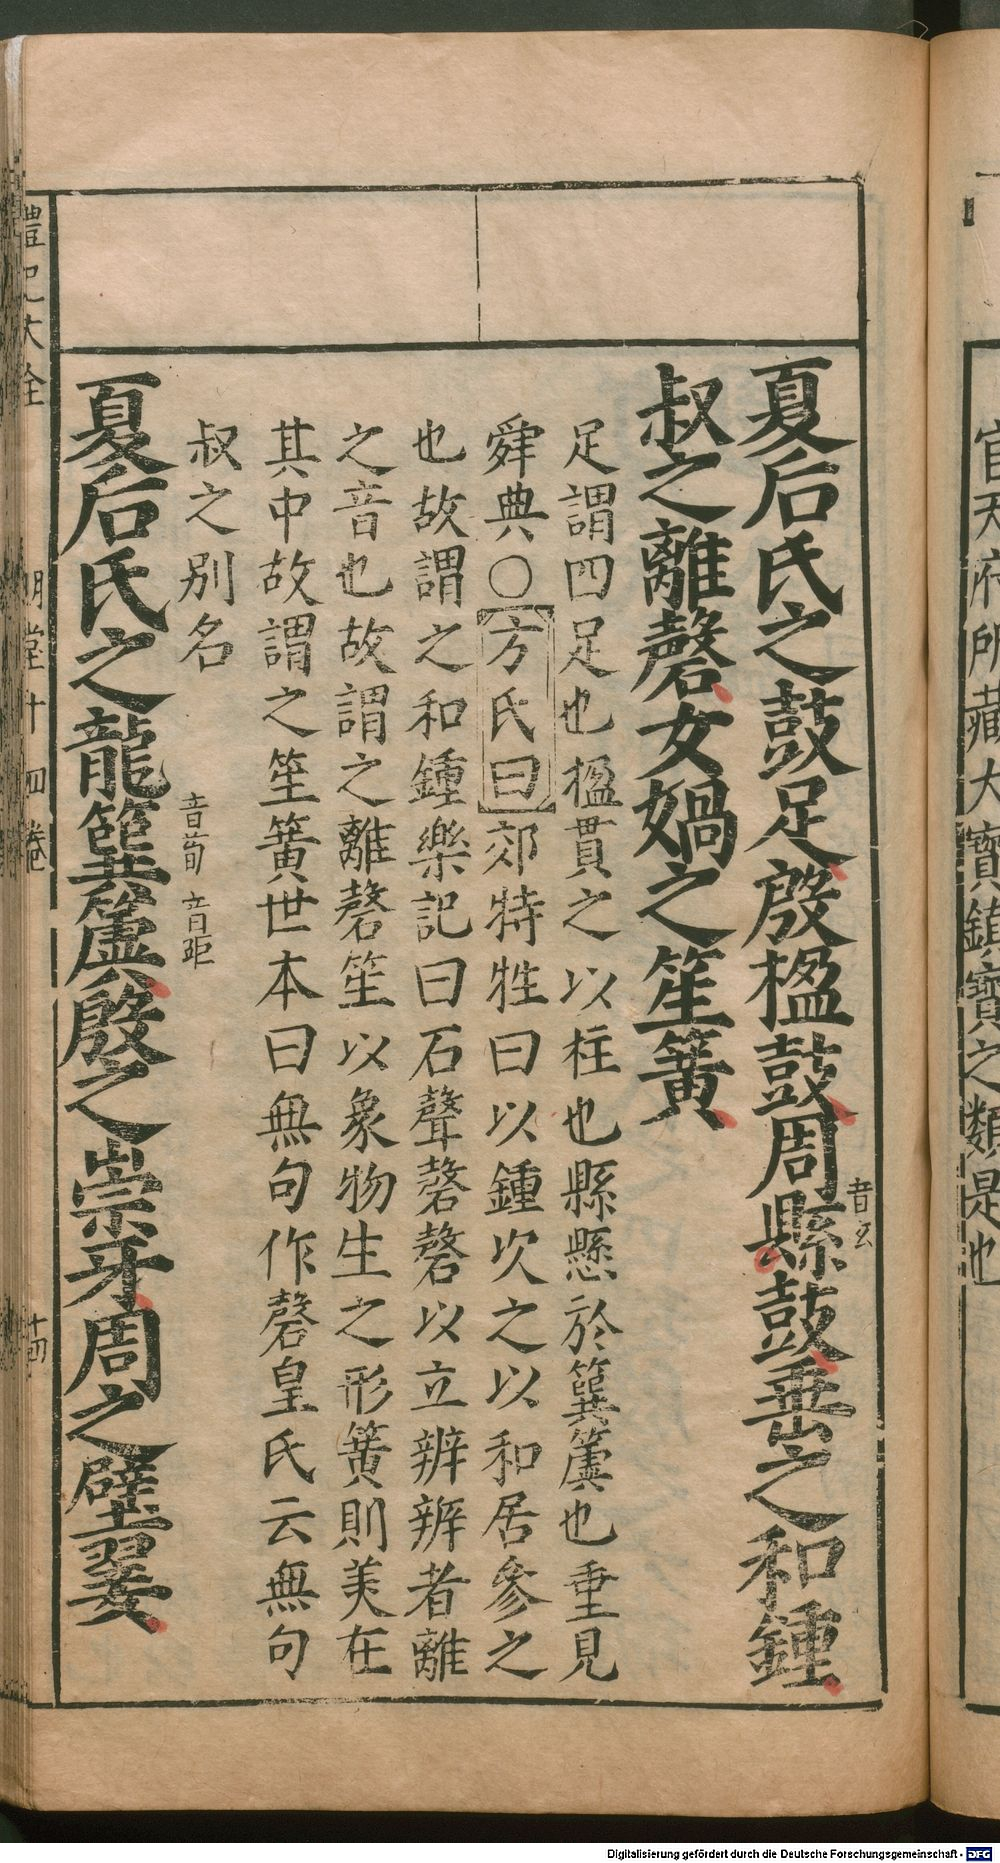 官天府所藏大寶鎮寶之類是也
夏后氏之鼓足殷楹鼓周縣鼓垂之和鍾
音玄
叔之離磬女媧之笙簧
足謂四足也楹貫之以柱也縣懸於簨簴也垂見
舜典○方氏曰郊特牲曰以鍾次之以和居參之
也故謂之和鍾樂記曰石聲磬磬以立辨辨者離
之音也故謂之離磬笙以象物生之形簧則美在
其中故謂之笙簧世本曰無句作磬皇氏云無句
叔之別名
夏后氏之龍簨簴殷之崇牙周之璧翣
音荀 音距
禮記大全 明堂十四卷 十四
Digitalisierung gefördert durch die Deutsche Forschungsgemeinschaft - DFG